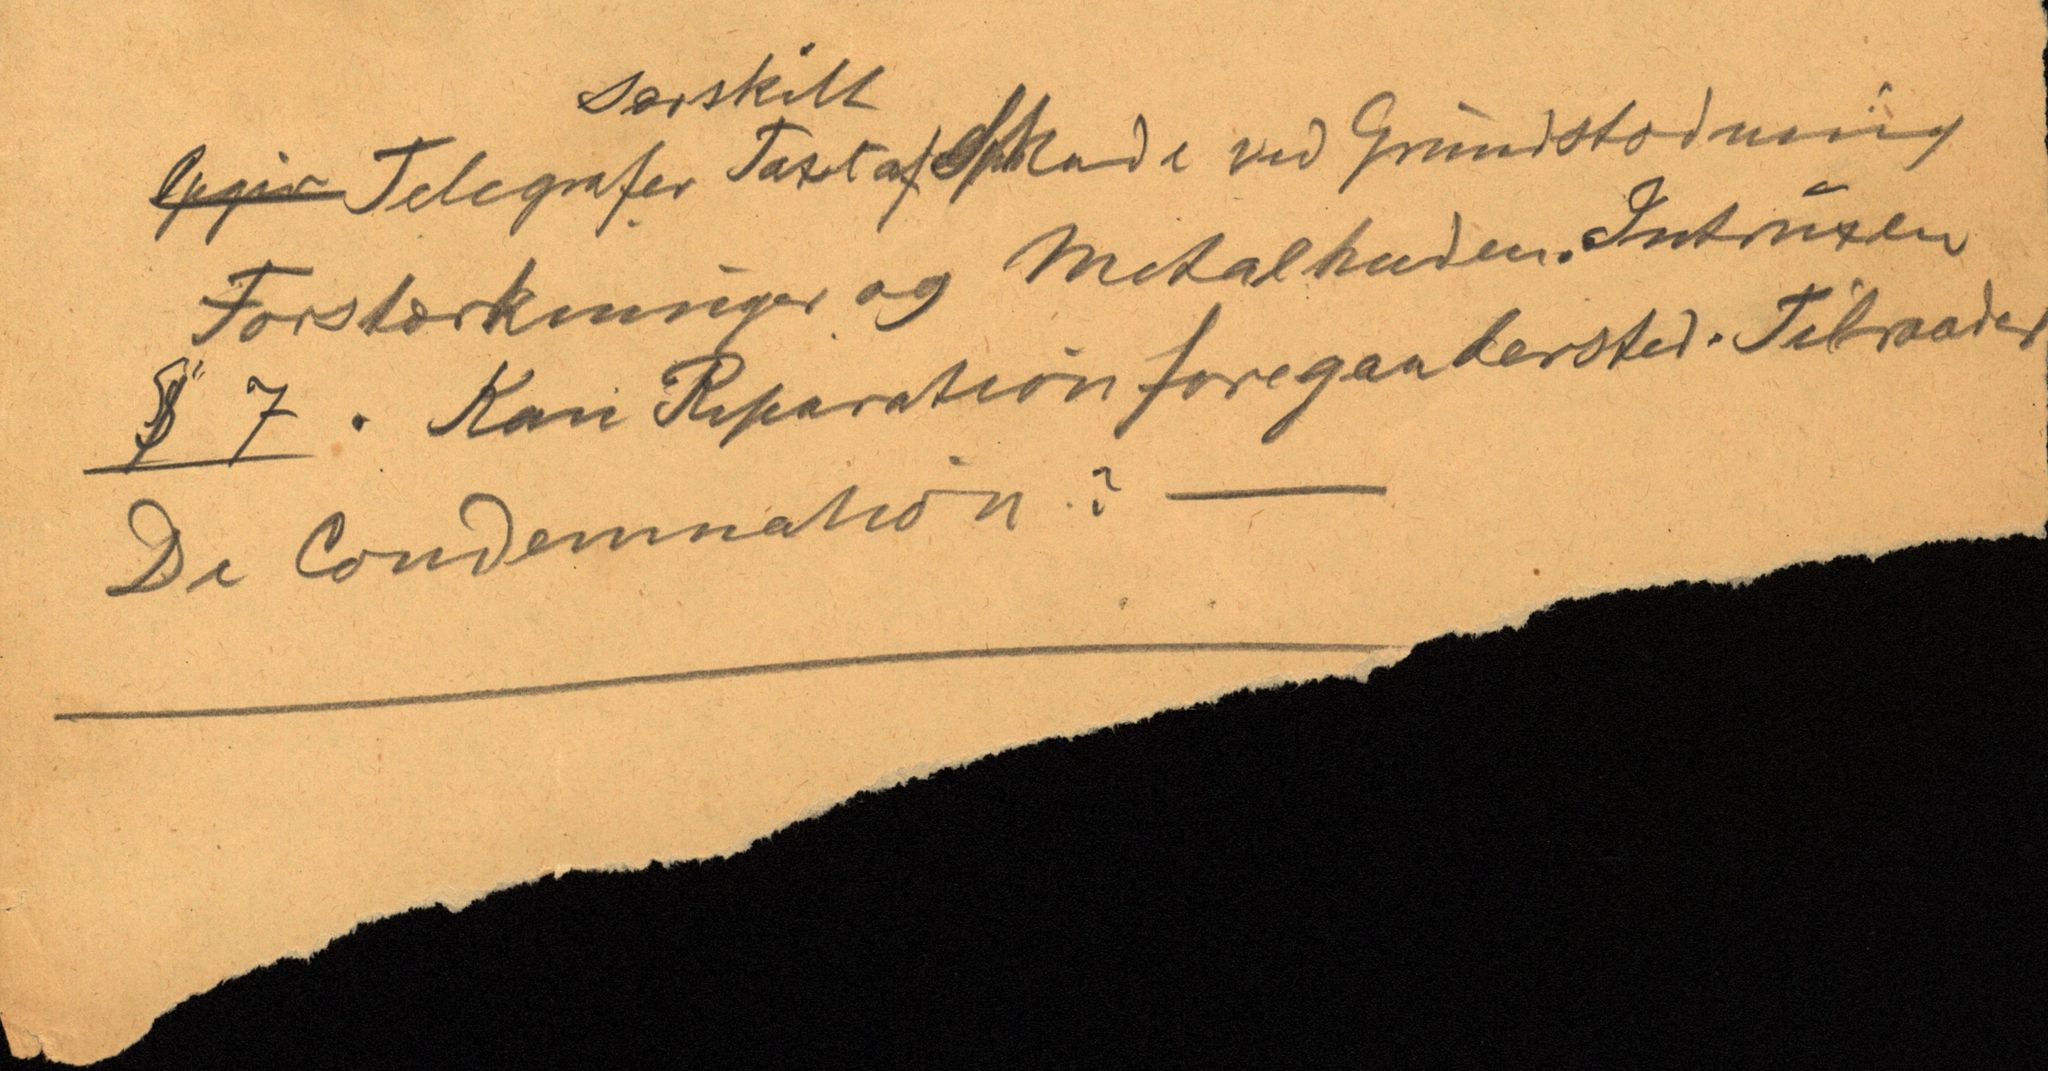 særskilt
Opgiv Telegrafer Taxt af Skade ved Grundstødning
Forstærkninger og Metalhuden. Intruxen
§ 7. Kan Reparation foregaa hersted. Tilraader
De Condemnation? —